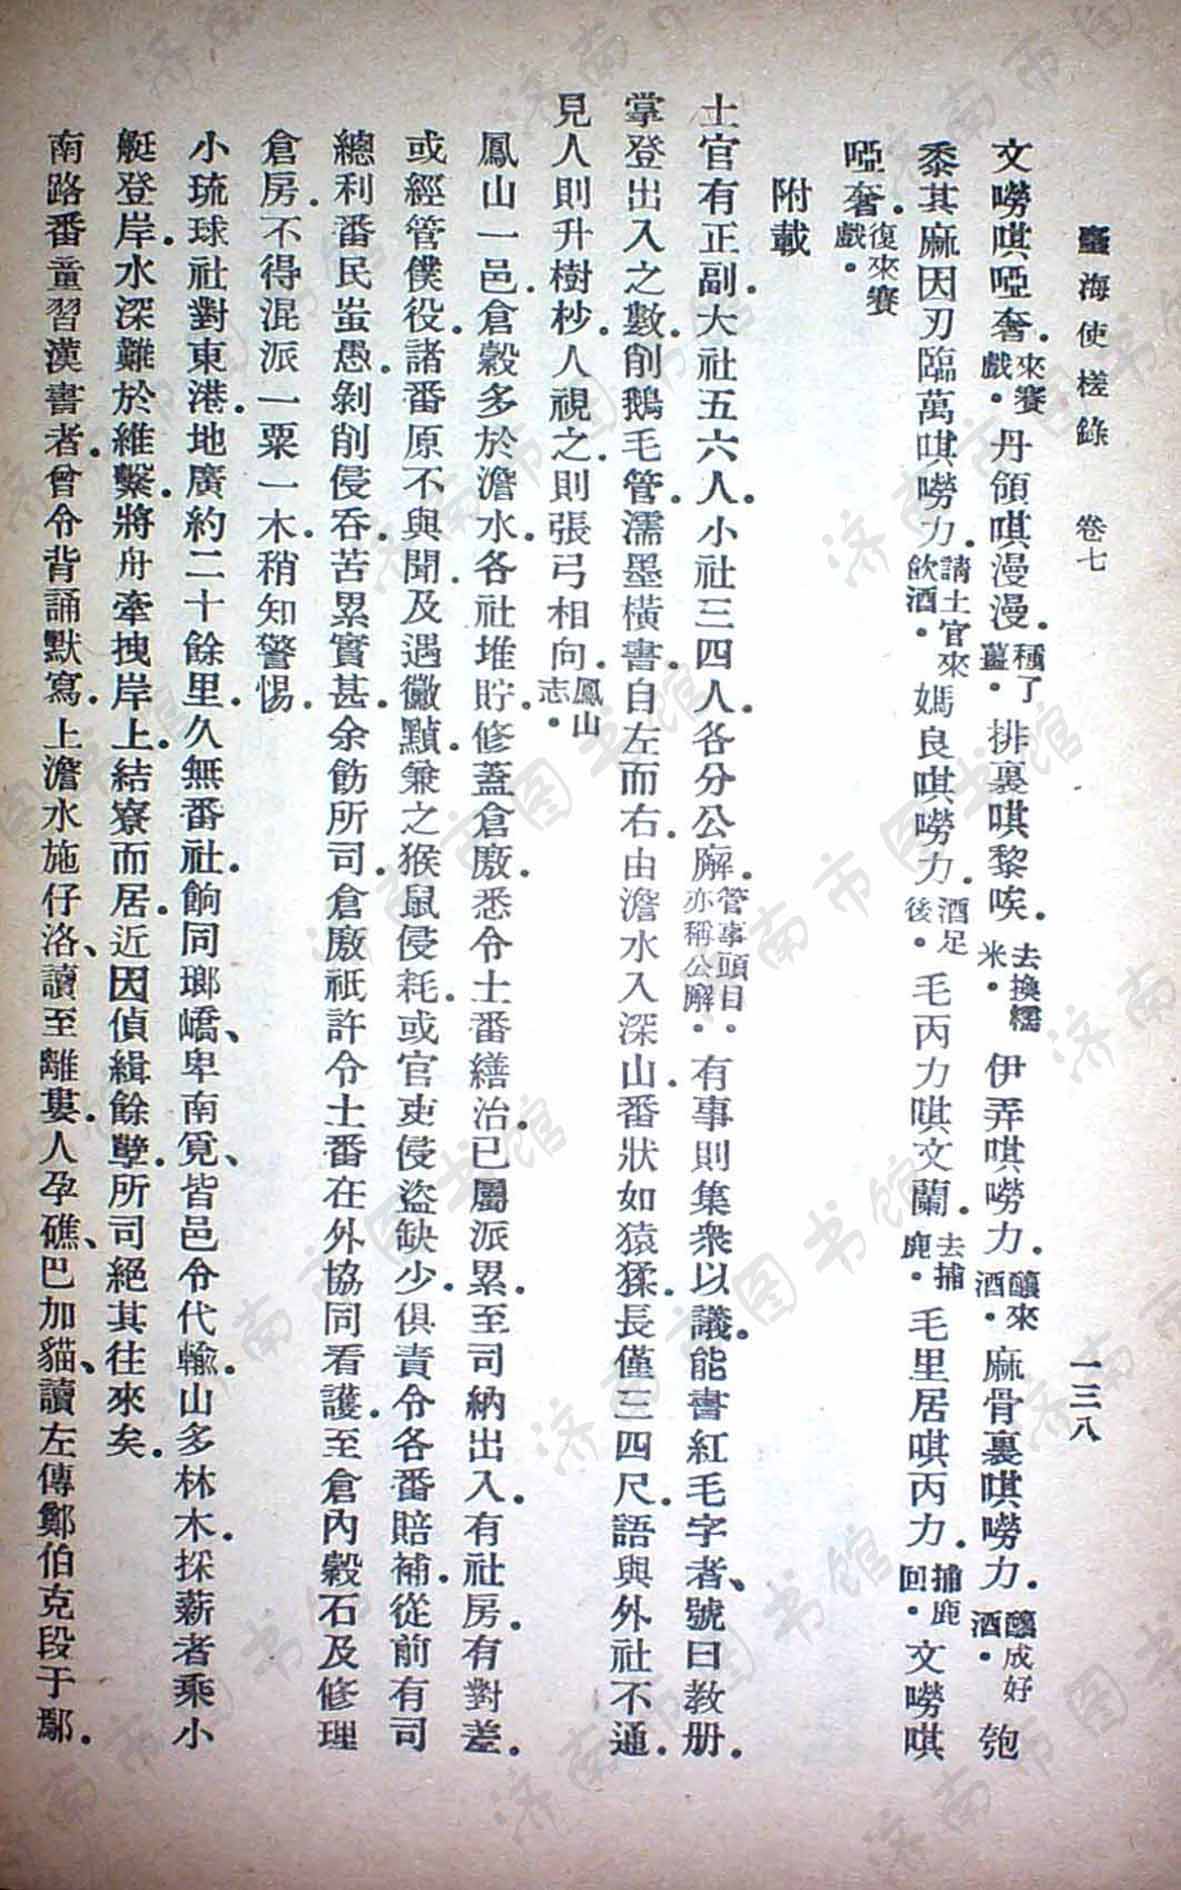 臺海使槎錄　卷七　一三八
文嘮唭啞奢。來賽戲。丹領唭漫漫。種了薑。排裏唭黎唉。去換糯米。伊弄唭嘮力。釀來酒。麻骨裏唭嘮力。釀成好酒。匏
黍其麻因刃臨萬唭嘮力。請土官來飲酒。媽良唭嘮力。酒足後。毛丙力唭文蘭。去捕鹿。毛里居唭丙力。捕鹿回。文嘮唭
啞奢。復來賽戲。
附載
土官有正副。大社五六人。小社三四人。各分公廨。管事頭目亦稱公廨。有事則集衆以議。能書紅毛字者、號曰教册。
掌登出入之數。削鵝毛管。濡墨橫書。自左而右。由澹水入深山。番狀如猿猱。長僅三四尺。語與外社不通。
見人則升樹杪。人視之。則張弓相向。鳳山志。
鳳山一邑。倉穀多於澹水。各社堆貯。修蓋倉廒。悉令土番繕治。已屬派累。至司納出入。有社房。有對差。
或經管僕役。諸番原不與聞。及遇黴黰。兼之猴鼠侵耗。或官吏侵盜缺少。俱責令各番賠補。從前有司
總利番民蚩愚。剝削侵吞。苦累實甚。余飭所司。倉廒祇許令土番在外協同看護。至倉內穀石及修理
倉房。不得混派一粟一木。稍知警惕。
小琉球社對東港。地廣約二十餘里。久無番社。餉同瑯嶠、卑南覓、皆邑令代輸。山多林木。採薪者乘小
艇登岸。水深難於維繫。將舟牽拽岸上。結寮而居。近因偵緝餘孽。所司絕其往來矣。
南路番童習漢書者。曾令背誦默寫。上澹水施仔洛、讀至離婁。人孕礁、巴加貓、讀左傳鄭伯克段于鄢。